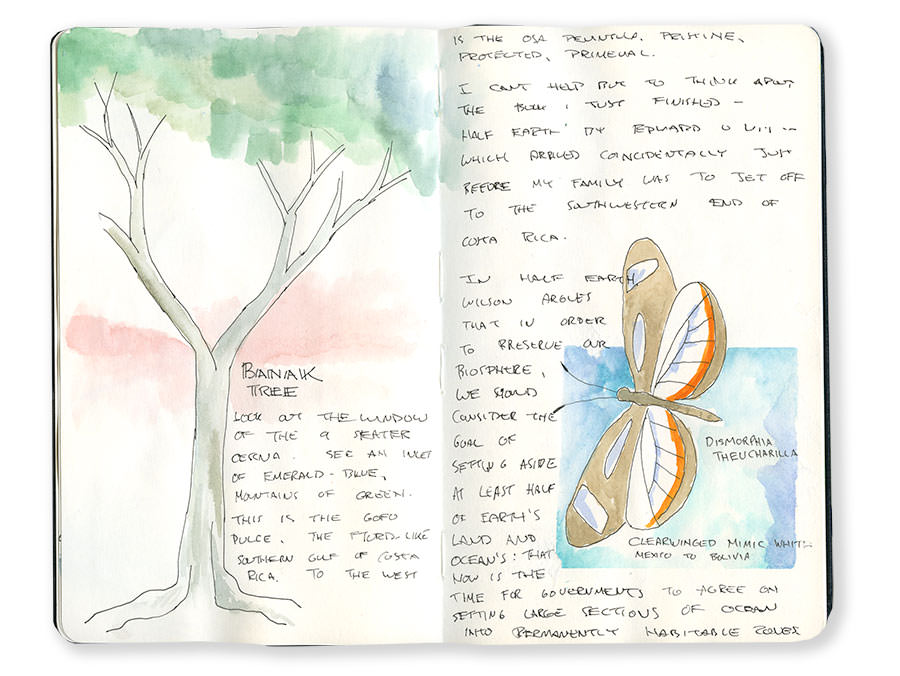 BANAK
TREE
LOOK OUT THE WINDOW
OF THE 9 SEATER
CERNA. SEE AN INLET
OF EMERALD-BLUE,
MOUNTAINS OF GREEN.
THIS IS THE GOFO
DULCE. THE FJORD-LIKE
SOUTHERN GULF OF COSTA
RICA. TO THE WEST
IS THE OSA PENINSULA, PRISTINE,
PROTECTED, PRIMEVAL.
I CAN'T HELP BUT TO THINK ABOUT
THE BOOK I JUST FINISHED -
HALF EARTH' BY EDWARD O
WHICH ARRIVED COINCIDENTALLY JUST
BEFORE MY FAMILY WAS TO JET OFF
TO THE SOUTHWESTERN END OF
COSTA RICA.
IN HALF EARTH,
WILSON ARGUES
THAT IN ORDER
TO PRESERVE OUR
BIOSPHERE,
WE SHOULD
CONSIDER THE
GOAL OF
SETTING ASIDE
AT LEAST HALF
OF EARTH'S
LAND AND
OCEAN'S: THAT
NOW IS THE
TIME FOR GOVERNMENTS TO AGREE ON
SETTING LARGE SECTIONS OF OCEAN
INTO PERMANENTLY HABITABLE ZONES
DISMORPHIA
THEUCHARILLA
CLEARWINGED MIMIC WHITE
MEXICO TO BOLIVIA